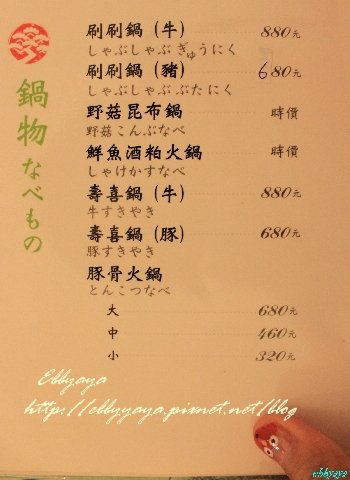 鍋物 なべもの
刷刷鍋 (牛) 880元
しゃぶしゃぶ ぎゅうにく
刷刷鍋 (豬) 680元
しゃぶしゃぶ ぶたにく
野菇昆布鍋 時價
野菇こんぶなべ
鮮魚酒粕火鍋 時價
しゃけかすなべ
壽喜鍋 (牛) 880元
牛すきやき
壽喜鍋 (豚) 680元
豚すきやき
豚骨火鍋
とんこつなべ
大 680元
中 460元
小 320元
Ebbyaya
http://ebbyyaya.pixnet.net/blog
ebbyaya